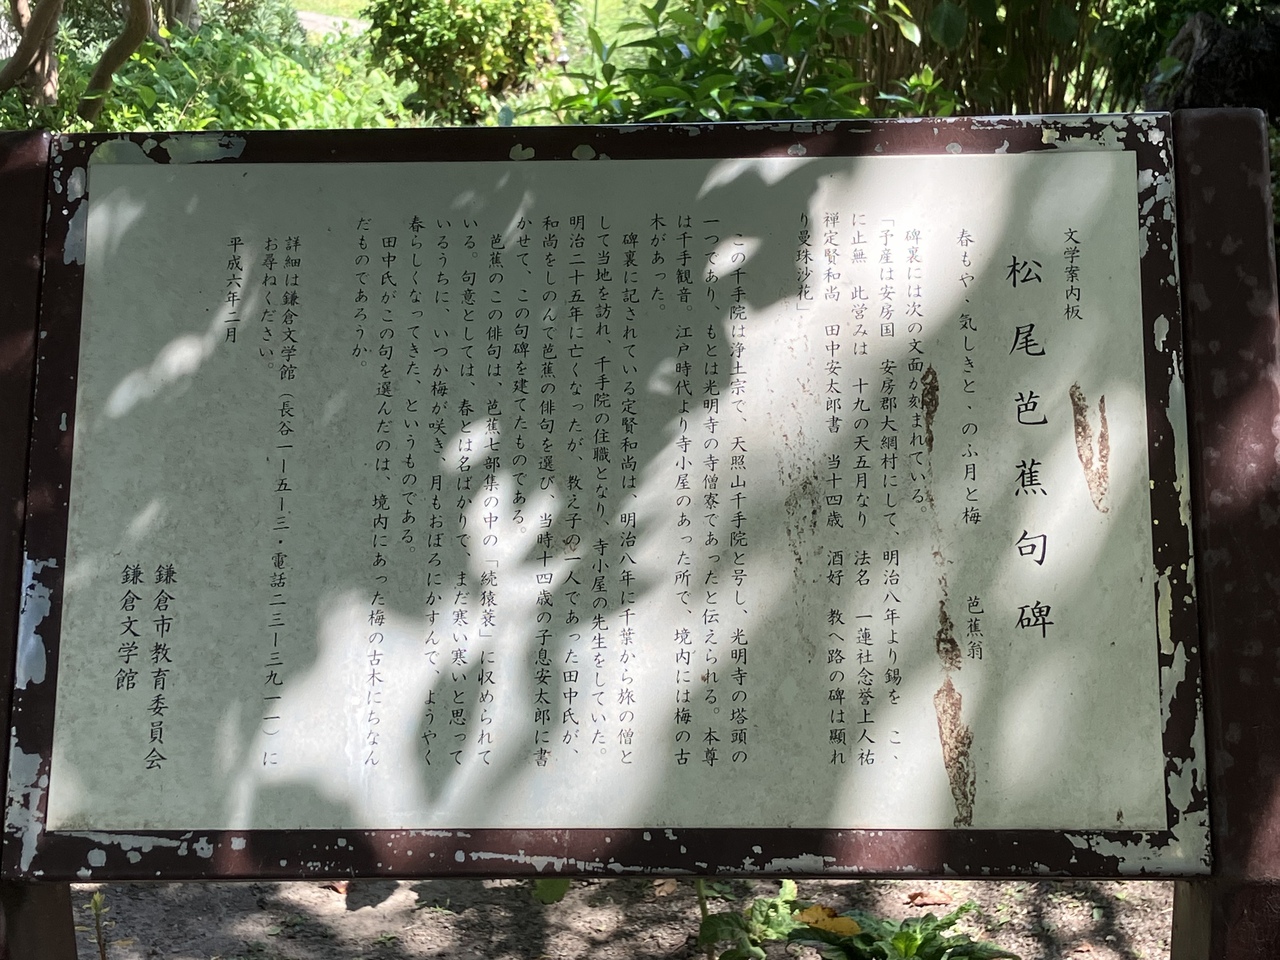 文学案内板
松尾芭蕉句碑
春もや、気しきと、のふ月と梅　芭蕉翁
碑裏には次の文面が刻まれている。
「予産は安房国　安房郡大網村にして、明治八年より錫を　こ、
に止無　此営みは　十九の天五月なり　法名　一蓮社念誉上人祐
禅定賢和尚　田中安太郎書　当十四歳　酒好　教へ路の碑は顕れ
り曼珠沙花」
この千手院は浄土宗で、天照山千手院と号し、光明寺の塔頭の
一つであり、もとは光明寺の寺僧寮であったと伝えられる。本尊
は千手観音。江戸時代より寺小屋のあった所で、境内には梅の古
木があった。
碑裏に記されている定賢和尚は、明治八年に千葉から旅の僧と
して当地を訪れ、千手院の住職となり、寺小屋の先生をしていた。
明治二十五年に亡くなったが、教え子の一人であった田中氏が、
和尚をしのんで芭蕉の俳句を選び、当時十四歳の子息安太郎に書
かせて、この句碑を建てたものである。
芭蕉のこの俳句は、芭蕉七部集の中の「続猿蓑」に収められて
いる。句意としては、春とは名ばかりで、まだ寒い寒いと思って
いるうちに、いつか梅が咲き、月もおぼろにかすんで、ようやく
春らしくなってきた、というものである。
田中氏がこの句を選んだのは、境内にあった梅の古木にちなん
だものであろうか。
詳細は鎌倉文学館（長谷一ー五ー三・電話二三ー三九一一）に
お尋ねください。
平成六年二月
鎌倉市教育委員会
鎌倉文学館